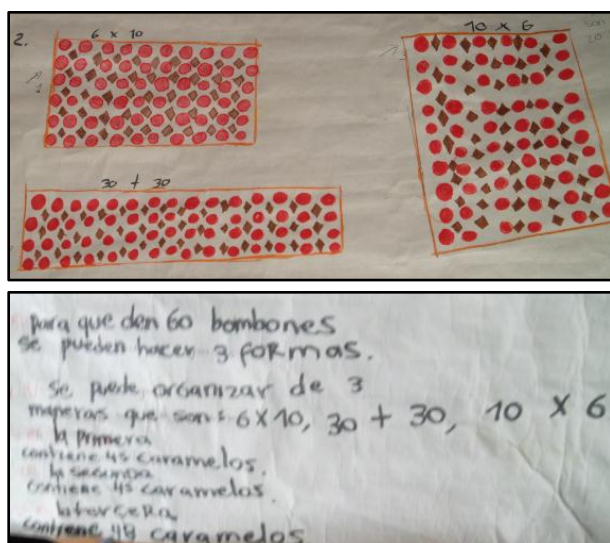 2.
6 x 10
10 x 6
30 + 30
para que den 60 bombones
se pueden hacer 3 formas.
se puede organizar de 3
maneras que son: 6x10, 30 + 30, 10 x 6
la primera
contiene 45 caramelos.
la segunda
contiene 45 caramelos.
la tercera
contiene 48 caramelos